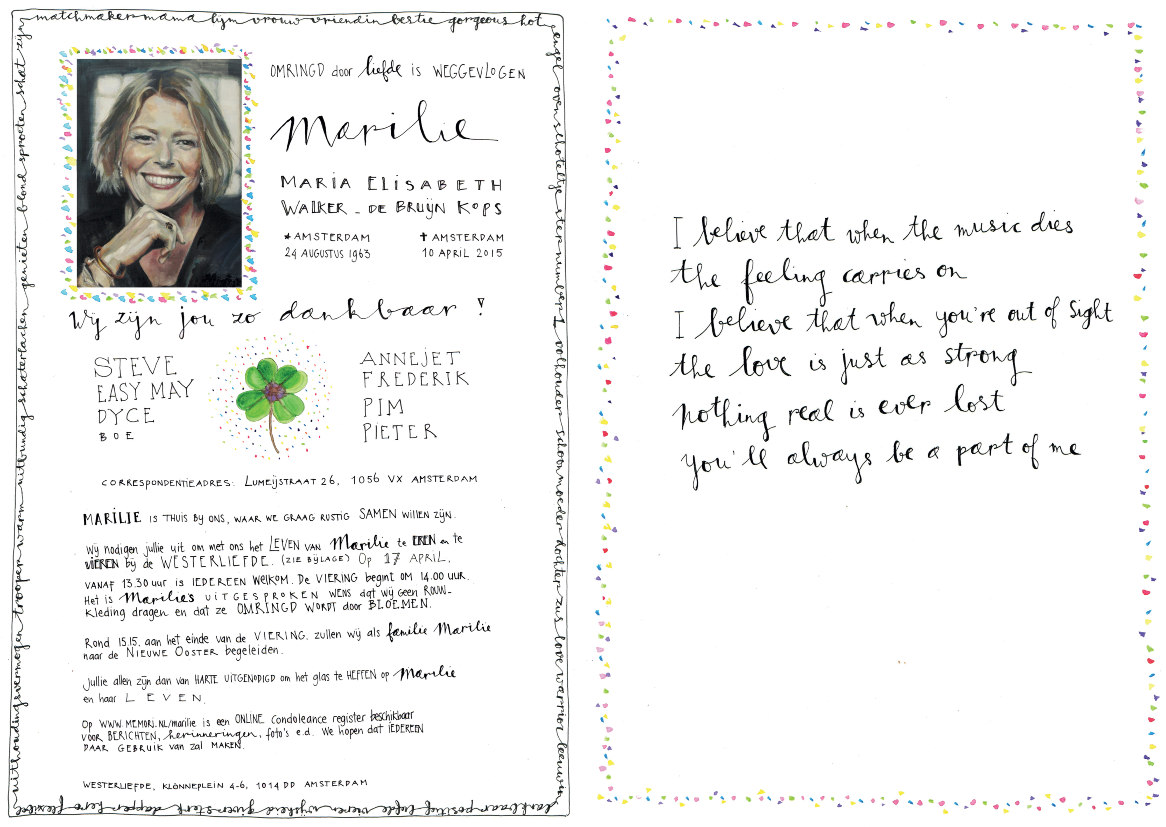 matchmaker mama lijn vrouw vriendin bestie gorgeous hot
engel oven schoteltje ster number 1 volhouder schoonmoeder dochter zus love warrior leeuwin
dankbaar positief liefde vieren wijsheid gever sterk dapper hero flexibel
uithoudingsvermogen trooper warm uitbundig schaterlachen genieten blond sproeten schat zijn
OMRINGD door liefde is WEGGEVLOGEN
Marilie
MARIA ELISABETH
WALKER - DE BRUIJN KOPS
* AMSTERDAM
24 AUGUSTUS 1963
† AMSTERDAM
10 APRIL 2015
Wij zijn jou zo dankbaar!
STEVE
EASY MAY
DYCE
BOE
ANNEJET
FREDERIK
PIM
PIETER
CORRESPONDENTIEADRES: LUMEIJSTRAAT 26, 1056 VX AMSTERDAM
MARILIE IS THUIS BIJ ONS, WAAR WE GRAAG RUSTIG SAMEN WILLEN ZIJN.
Wij nodigen jullie uit om met ons het LEVEN VAN Marilie te EREN en te
VIEREN bij de WESTERLIEFDE. (ZIE BIJLAGE) Op 17 APRIL,
VANAF 13.30 uur is IEDEREEN WELKOM. De VIERING begint OM 14.00 UUR.
Het is Marilie's UITGESPROKEN WENS dat wij geen ROUW-
kleding dragen en dat ze OMRINGD WORDT door BLOEMEN.
Rond 15.15, aan het einde van de VIERING, zullen wij als familie Marilie
naar de NIEUWE OOSTER begeleiden.
Jullie allen zijn dan van HARTE UITGENODIGD om het glas te HEFFEN op Marilie
en haar LEVEN.
Op WWW.MEMORI.NL/marilie is een ONLINE condoleance register beschikbaar
VOOR BERICHTEN, herinneringen, foto's e.d. We hopen dat IEDEREEN
DAAR GEBRUIK van zal MAKEN.
WESTERLIEFDE, KLÖNNEPLEIN 4-6, 1014 DD AMSTERDAM
I believe that when the music dies
the feeling carries on
I believe that when you're out of sight
the love is just as strong
nothing real is ever lost
you'll always be a part of me